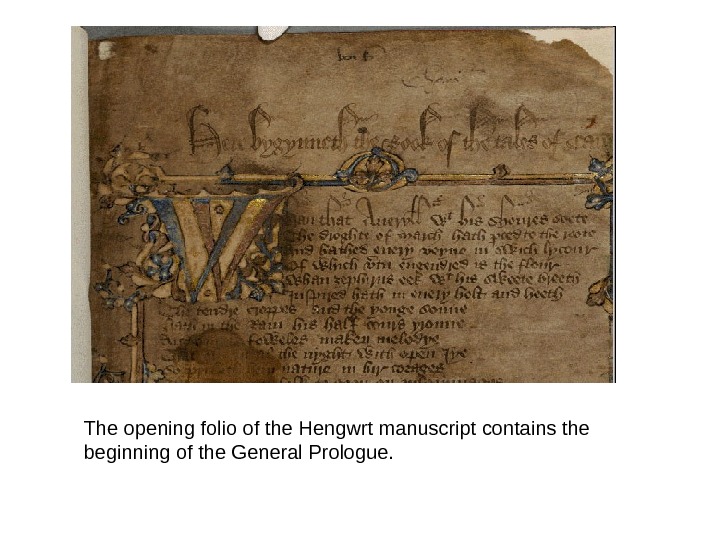 Here bygynneth the Book of the tales of Caun
Whan that Aueryll wt his shoures soote
The droghte of march hath perced to the roote
And bathed euery veyne in swich lycour
Of which vertu engendred is the flour
Whan zephirus eek wt his sweete breeth
Inspired hath in euery holt and heeth
The tendre croppes and the yonge sonne
Hath in the Ram his half cours yronne
And foweles maken melodye
That al the nyght with open Iye
So nature in hir corages
The opening folio of the Hengwrt manuscript contains the
beginning of the General Prologue.